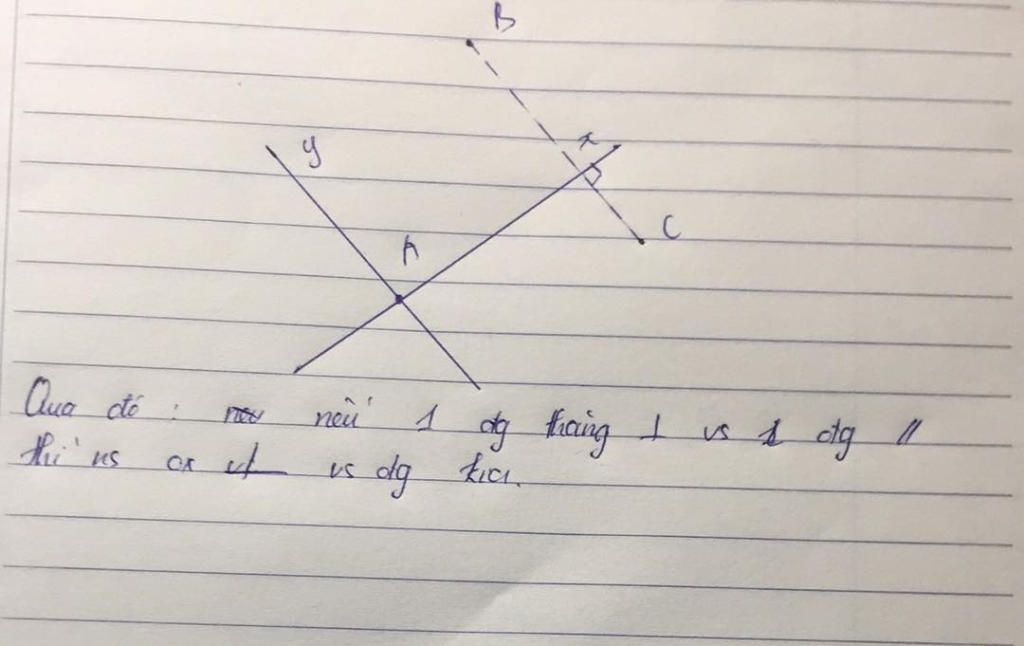 B
x
y
C
A
Qua đó : nếu 1 đg thẳng ⊥ vs 1 đg //
thì ns cx ⊥ vs đg kia.